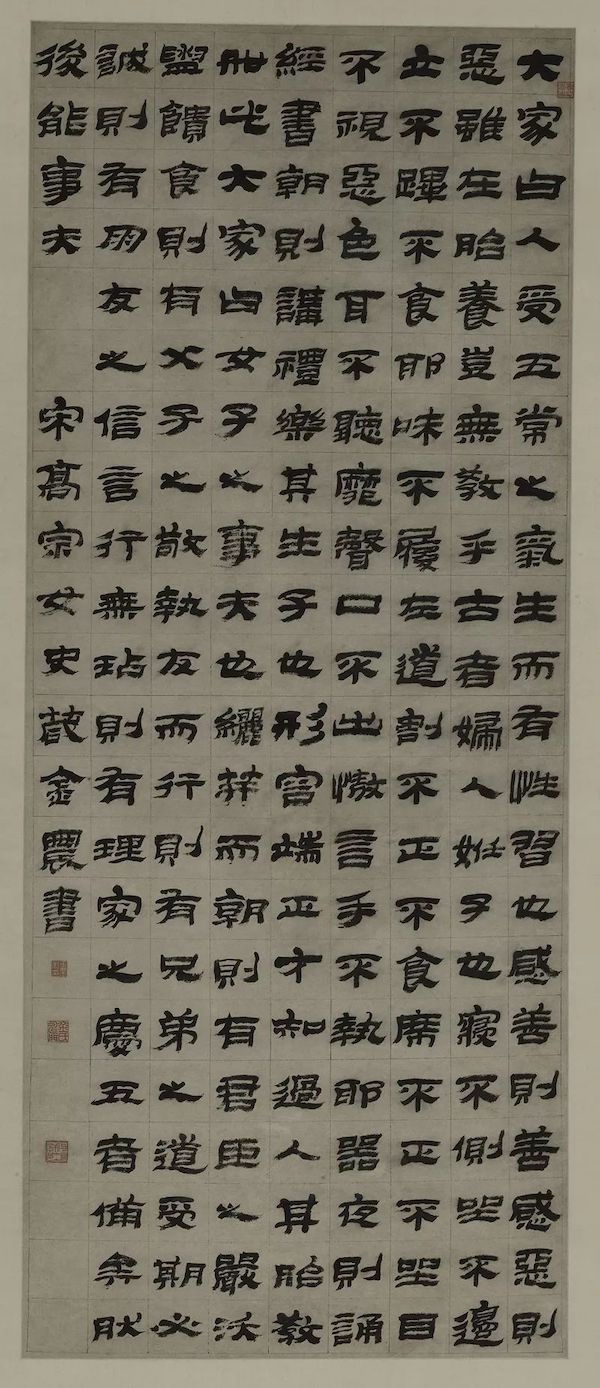 大家曰人受五常之氣生而有性習也感善則善感惡則
惡雖在胎養豈無教乎古者婦人姙子也寢不側坐不邊
立不蹕不食耶味不履左道割不正不食席不正不坐目
不視惡色耳不聽靡聲口不出慠言手不執耶器夜則誦
經書朝則講禮樂其生子也形容端正才知過人其胎教
如此大家曰女子之事夫也纚笄而朝則有君臣之嚴沃
盥饋食則有父子之敬執友而行則有兄弟之道受期必
誠則有朋友之信言行無玷則有理家之慶五者備矣然
後能事夫 宋高宗女史箴金農書